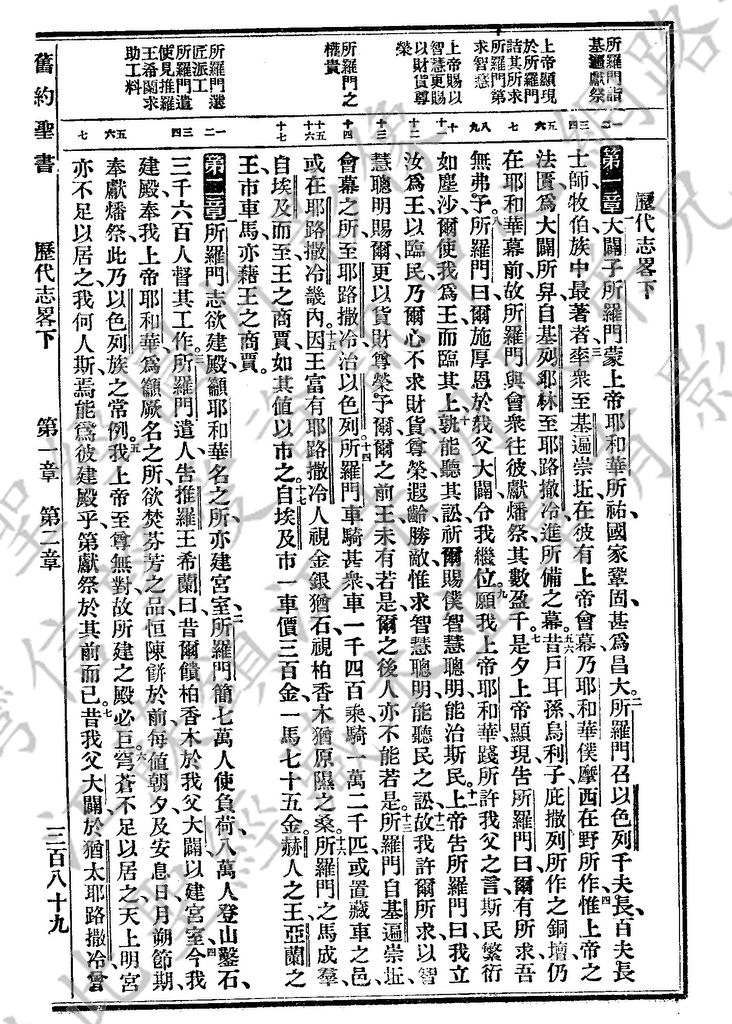 歷代志畧下
第一章大闢子所羅門蒙上帝耶和華所祐國家鞏固甚爲昌大所羅門召以色列千夫長百夫長
士師牧伯族中最著者率衆至基遍崇坵在彼有上帝會幕乃耶和華僕摩西在野所作惟上帝之
法匱爲大闢所舁自基列耶林至耶路撒冷進所備之幕昔戶耳孫烏利子庇撒列所作之銅壇仍
在耶和華幕前故所羅門與會衆往彼獻燔祭其數盈千是夕上帝顯現告所羅門曰爾有所求吾
無弗予所羅門曰爾施厚恩於我父大闢令我繼位願我上帝耶和華踐所許我父之言斯民繁衍
如塵沙爾使我爲王而臨其上孰能聽其訟祈爾賜僕智慧聰明能治斯民上帝告所羅門曰我立
汝爲王以臨民乃爾心不求財貨尊榮遐齡勝敵惟求智慧聰明能聽民之訟故我許爾所求以智
慧聰明賜爾更以貨財尊榮予爾爾之前王未有若是爾之後人亦不能若是所羅門自基遍崇坵
會幕之所至耶路撒冷治以色列所羅門車騎甚衆車一千四百乘騎一萬二千匹或置藏車之邑
或在耶路撒冷畿內因王富有耶路撒冷人視金銀猶石視柏香木猶原隰之桑所羅門之馬成羣
自埃及而至王之商賈如其值以市之自埃及市一車價三百金一馬七十五金赫人之王亞蘭之
王市車馬亦藉王之商賈
第二章所羅門志欲建殿籲耶和華名之所亦建宮室所羅門簡七萬人使負荷八萬人登山鑿石
三千六百人督其工作所羅門遣人告推羅王希蘭曰昔爾饋柏香木於我父大闢以建宮室今我
建殿奉我上帝耶和華爲籲厥名之所欲焚芬芳之品恒陳餅於前每值朝夕及安息日月朔節期
奉獻燔祭此乃以色列族之常例我上帝至尊無對故所建之殿必巨穹蒼不足以居之天上明宮
亦不足以居之我何人斯焉能爲彼建殿乎第獻祭於其前而已昔我父大闢於猶太耶路撒冷會
所羅門詣
基遍獻祭
上帝顯現
於所羅門
詰其所求
所羅門第
求智慧
上帝賜以
智慧更賜
以財貨尊
榮
所羅門之
權貴
所羅門選
匠派工
所羅門遣
使見推羅
王希蘭求
助工料
舊約聖書
歷代志畧下
第一章
第二章
三百八十九